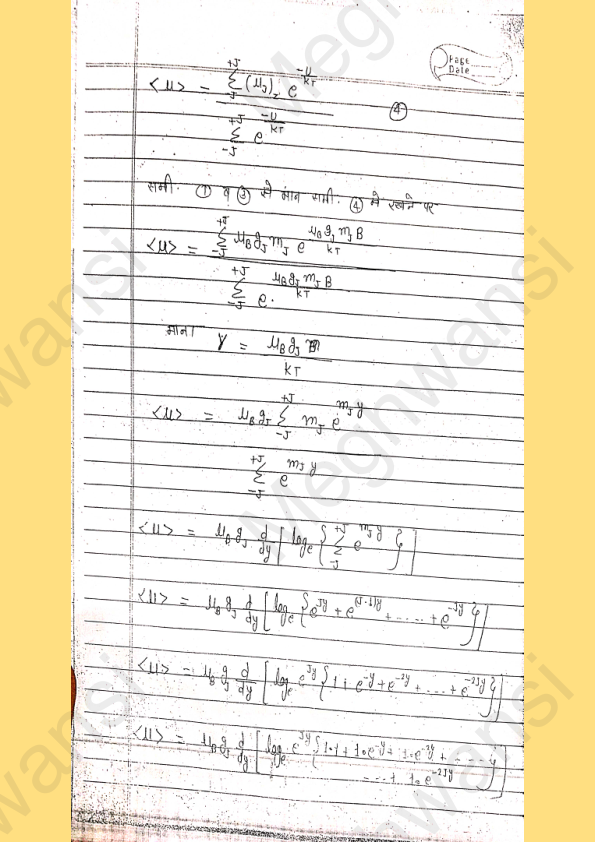 Page
Date
<μ> = Σ_{-J}^{+J} (μ_J)_z e^{-U/kT} / Σ_{-J}^{+J} e^{-U/kT} ④
समी. ① व ③ से मान समी. ④ में रखने पर
<μ> = Σ_{-J}^{+J} μ_B g_J m_J e^{μ_B g_J m_J B/kT} / Σ_{-J}^{+J} e^{μ_B g_J m_J B/kT}
माना γ = μ_B g_J B / kT
<μ> = μ_B g_J Σ_{-J}^{+J} m_J e^{m_J y} / Σ_{-J}^{+J} e^{m_J y}
<μ> = μ_B g_J d/dy [log_e {Σ_{-J}^{+J} e^{m_J y}}]
<μ> = μ_B g_J d/dy [log_e {e^{Jy} + e^{(J-1)y} + ..... + e^{-Jy}}]
<μ> = μ_B g_J d/dy [log_e e^{Jy} {1 + e^{-y} + e^{-2y} + .... + e^{-2Jy}}]
<μ> = μ_B g_J d/dy [log_e e^{Jy} {1·1 + 1·e^{-y} + 1·e^{-2y} + ....
...+ 1·e^{-2Jy}}]
Meghwansi
Meghwansi
wansi
wansi